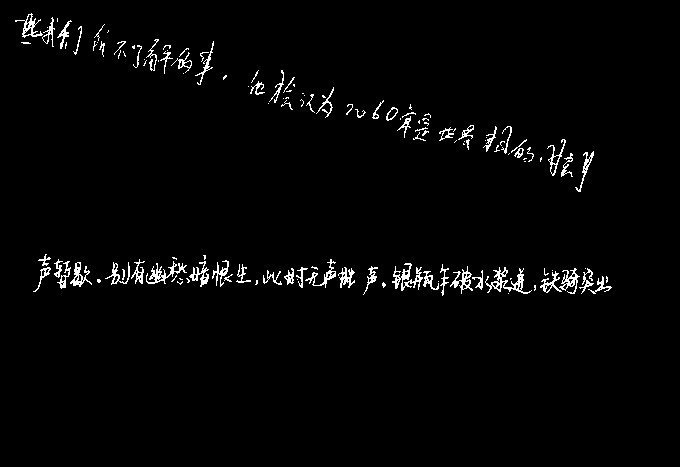 些我们所不了解的事，他推认为2060年是世界末日的，时间
声暂歇。别有幽愁暗恨生，此时无声胜声。银瓶乍破水浆迸，铁骑突出